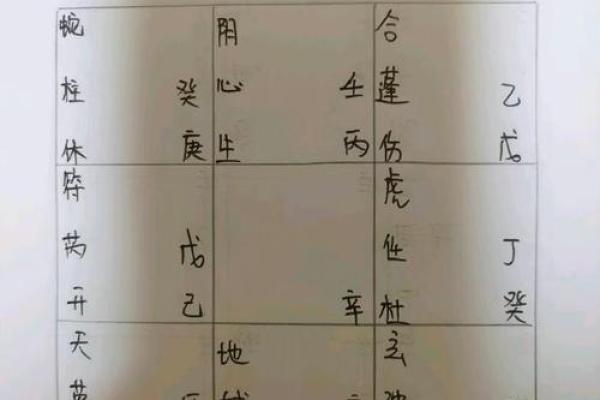 蛇 阴 合
柱 癸 心 壬 蓬 乙
休 庚 生 丙 伤 戊
符 虎
芮 戊 任 丁
开 己 辛 杜 癸
天 地 玄
英